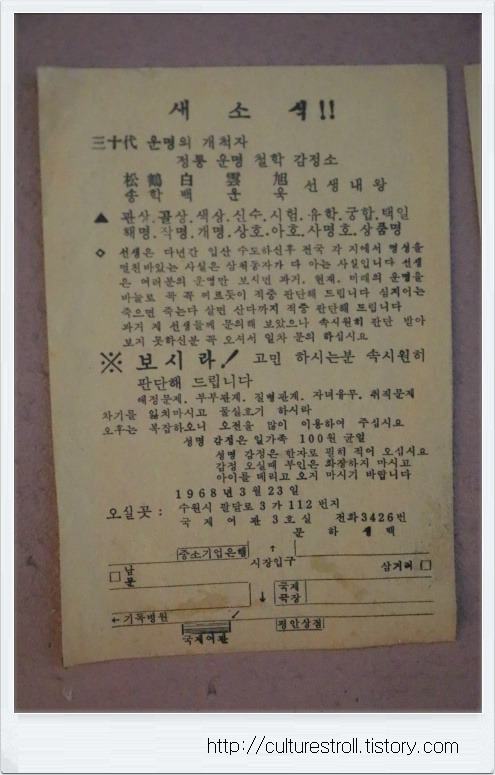 새 소 식!!
三十代 운명의 개척자
정통 운명 철학 감정소
松鶴 白 雲 旭
송학 백 운 욱 선생내왕
▲ 관상.골상.색상.신수.시험.유학.궁합.택일
해명.작명.개명.상호.아호.사명호.상품명
◇ 선생은 다년간 입산 수도하신후 전국 각 지에서 명성을
떨친바있는 사실은 삼척동자가 다 아는 사실입니다 선생
은 여러분의 운명만 보시면 과거. 현재. 미래의 운명을
바늘로 꼭 꼭 찌르듯이 적중 판단해 드립니다 심지어는
죽으면 죽는다 살면 산다까지 적중 판단해 드립니다
과거 제 선생들께 문의해 보았으나 속시원히 판단 받아
보지 못하신분 꼭 오셔서 일차 문의 하십시요
※ 보시라! 고민 하시는분 속시원히
판단해 드립니다
애정문제. 부부관계. 질병관계. 자녀유무. 취직문제
차기를 잃치마시고 물실호기 하시라
오후는 복잡하오니 오전을 많이 이용하여 주십시요
성명 감정은 일가족 100원 균일
성명 감정은 한자로 필히 적어 오십시요
감정 오실때 부인은 화장하지 마시고
아이를 데리고 오지 마시기 바랍니다
1968년 3월 23일
오실곳 : 수원시 팔달로 3가 112번지
국제여관 3호실 전화 3426번
문 하 생 백
중소기업은행 ↑
시장입구 삼거리
남문
국제극장
↓
←기독병원
국제여관
평안상점
http://culturestroll.tistory.com